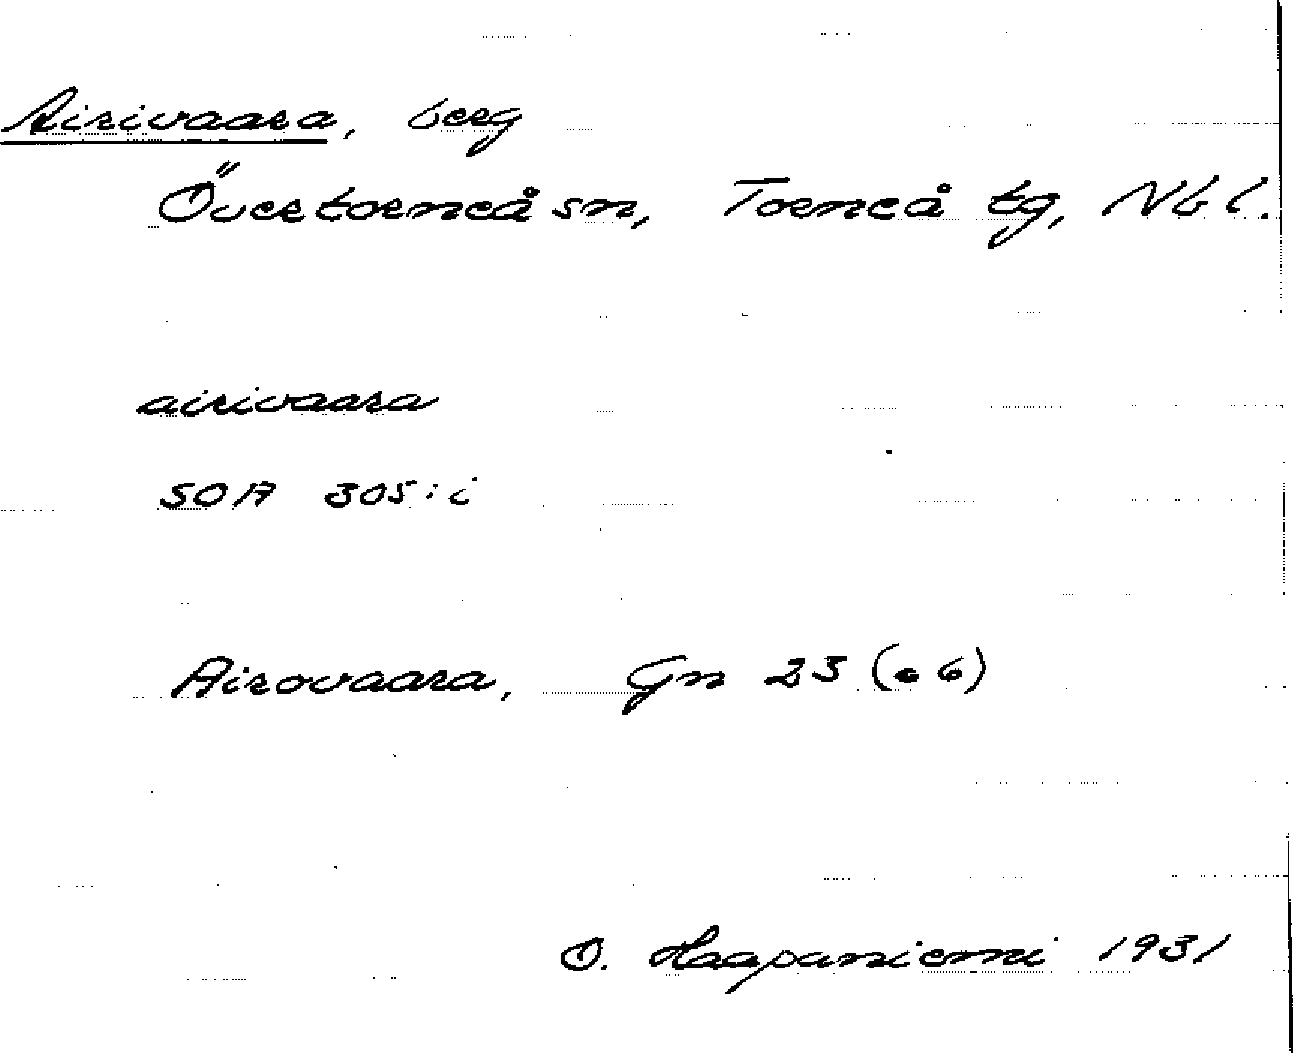 Airivaara, berg
Övertorneå sn, Torneå tg, Nb l.
airivaara
SOA 305:i
Airovaara, Gn 23 (● 6)
O. Haapaniemi 1931